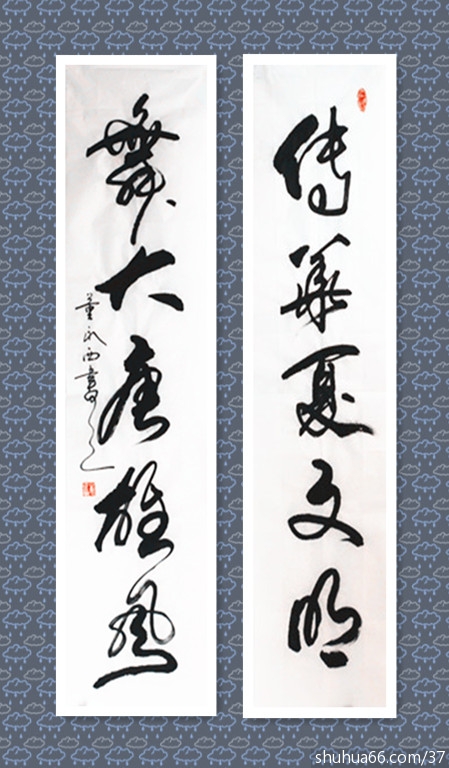 傳華夏文明
舞大唐雄風
董永西書
shuhua66.com/37